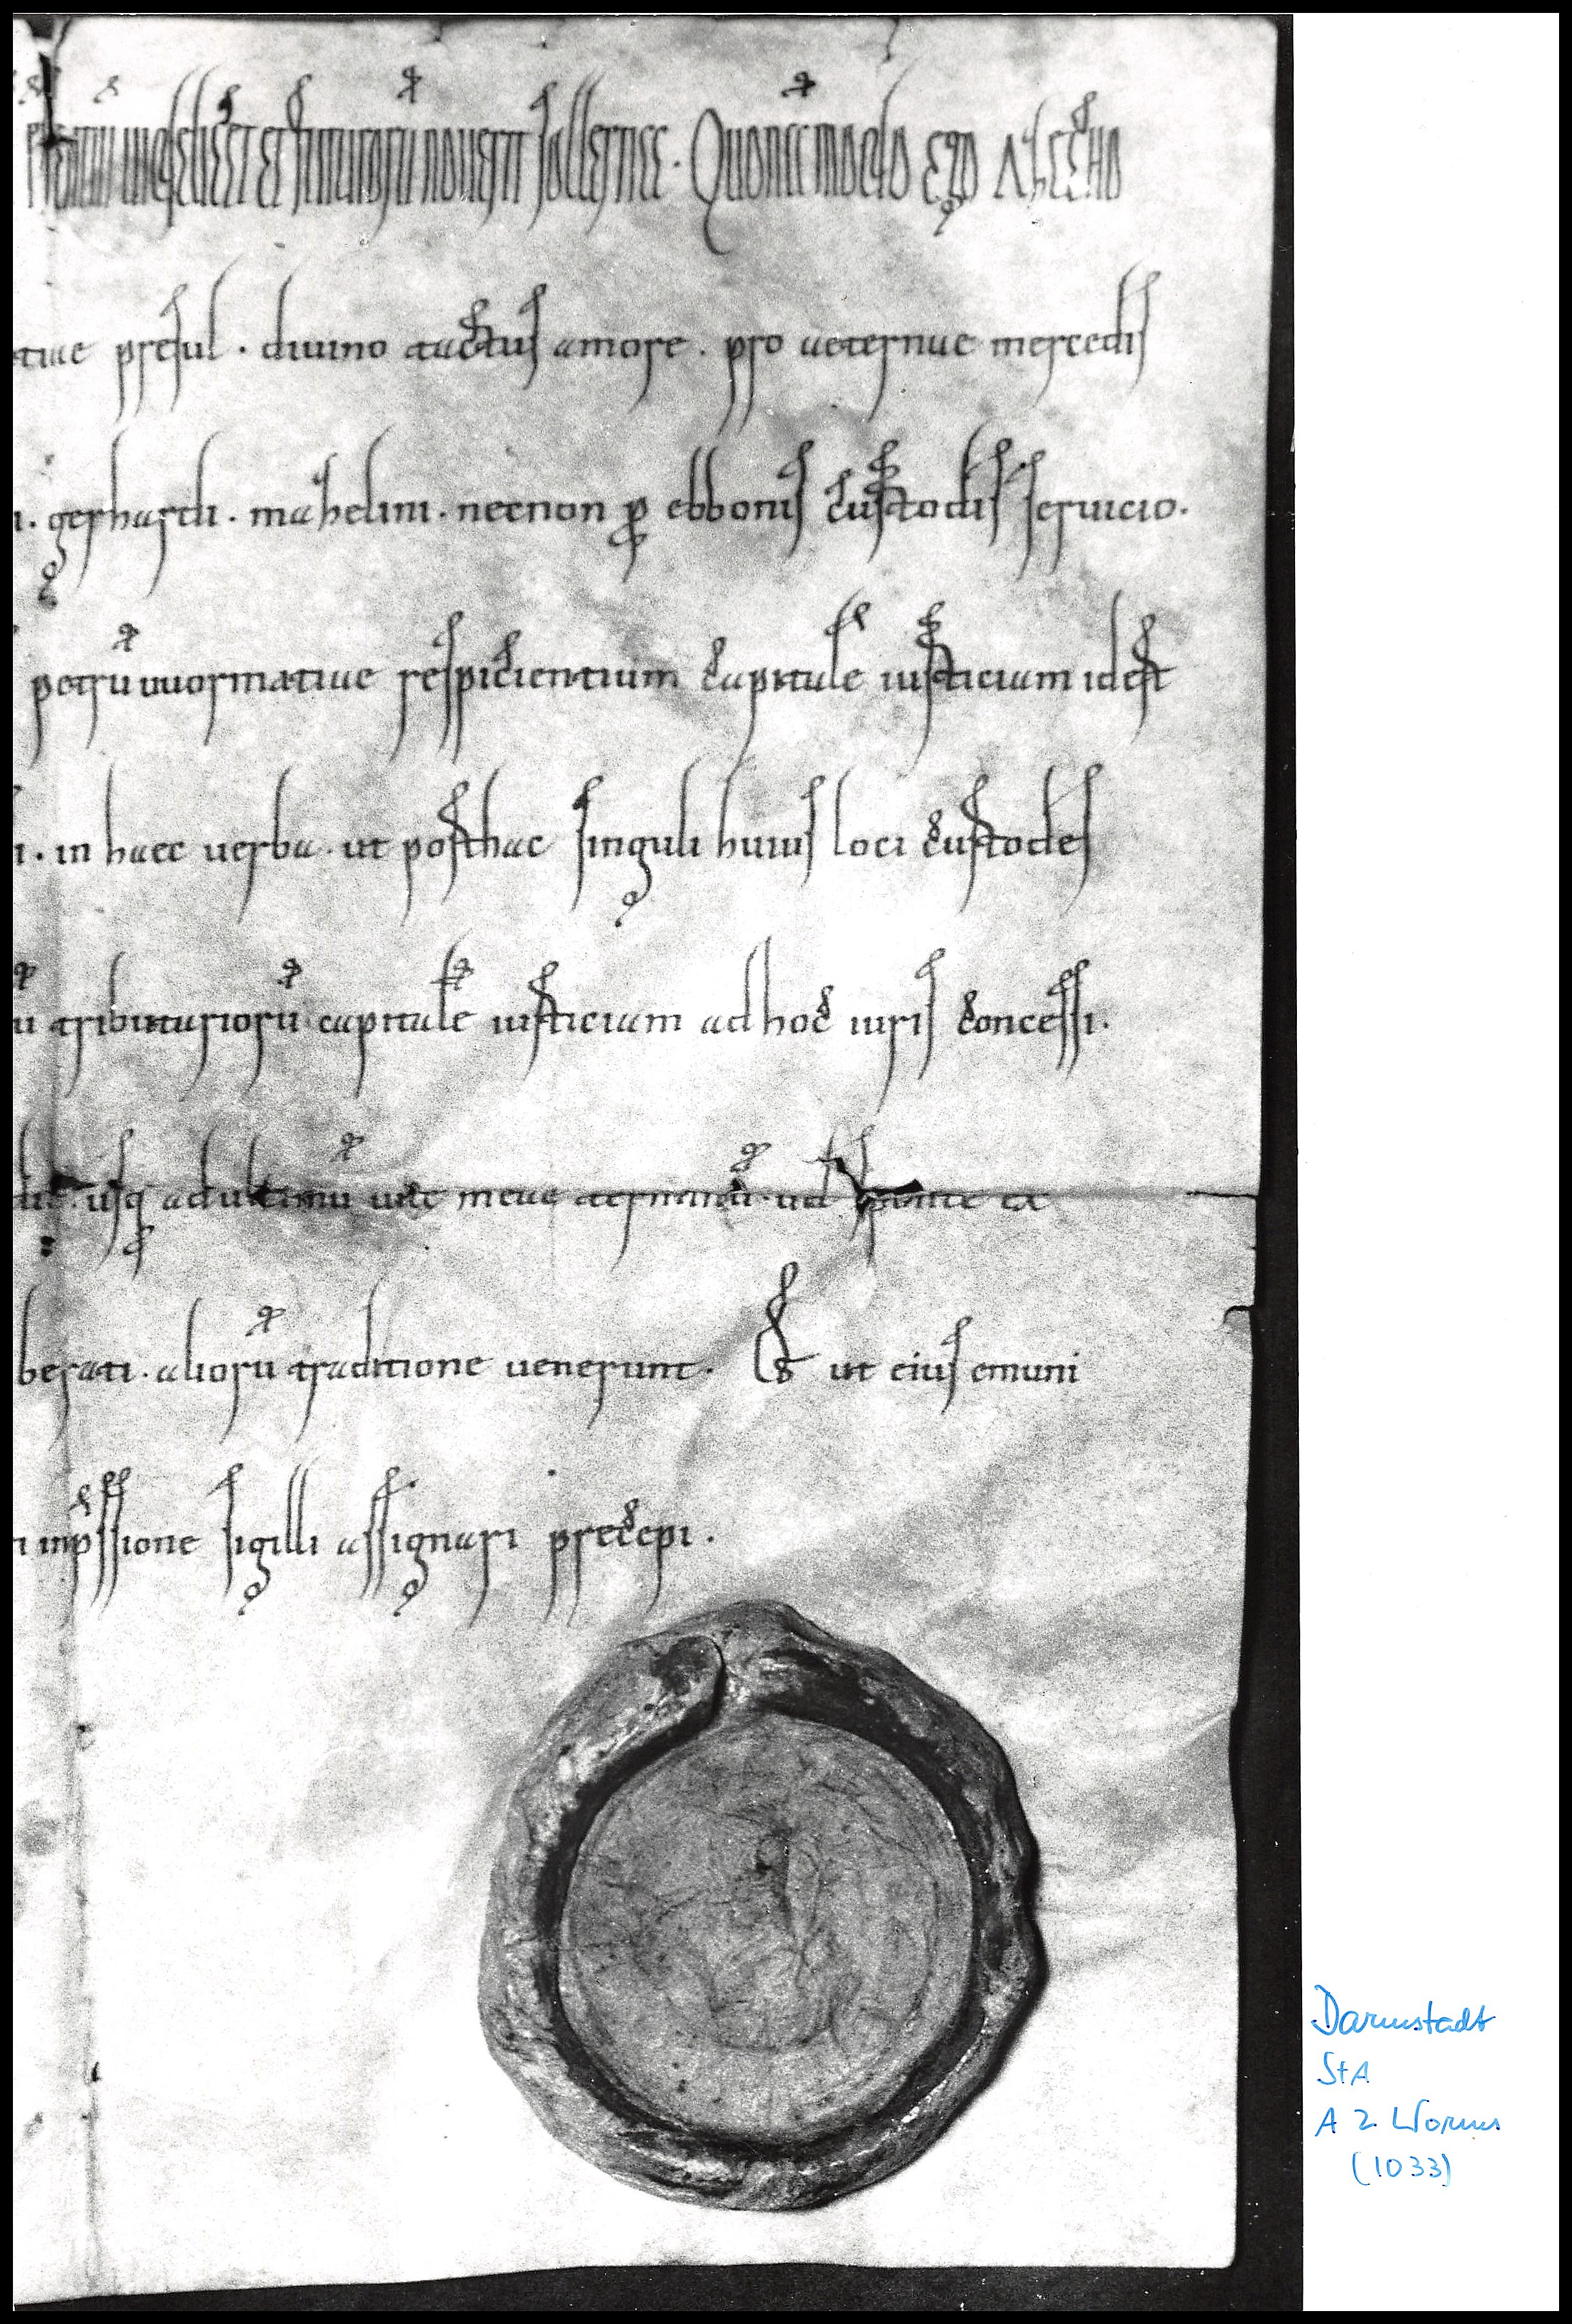 scilicet et futuroru nouerit sollertiae. Quonā modo ego Azecho
tiae presul. diuino tactus amore. pro aeternae mercedis
i. gerhardi. mahelini. necnon p ebbonis custodis seruicio.
petrū uuormatiae respicientium capitalē iusticiam idest
i. in haec uerba. ut posthac singuli huius loci custodes
ū tributariorū capitalē iusticiam ad hoc iuris concessi.
usq; ad ultimū uitę meae terminū. uel sponte ex
berati. aliorū traditione uenerunt. Et ut eius emuni
i inp̄ssione sigilli assignari precepi.
Darmstadt
StA
A 2 Worms
(1033)